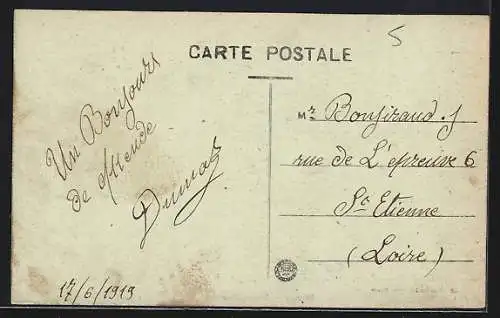 5
CARTE POSTALE
Un Bonjours
de Ostende
Dumas
17/6/1919
Mr Bonjiraud. J
rue de L'épreuve 6
St Etienne
(Loire)